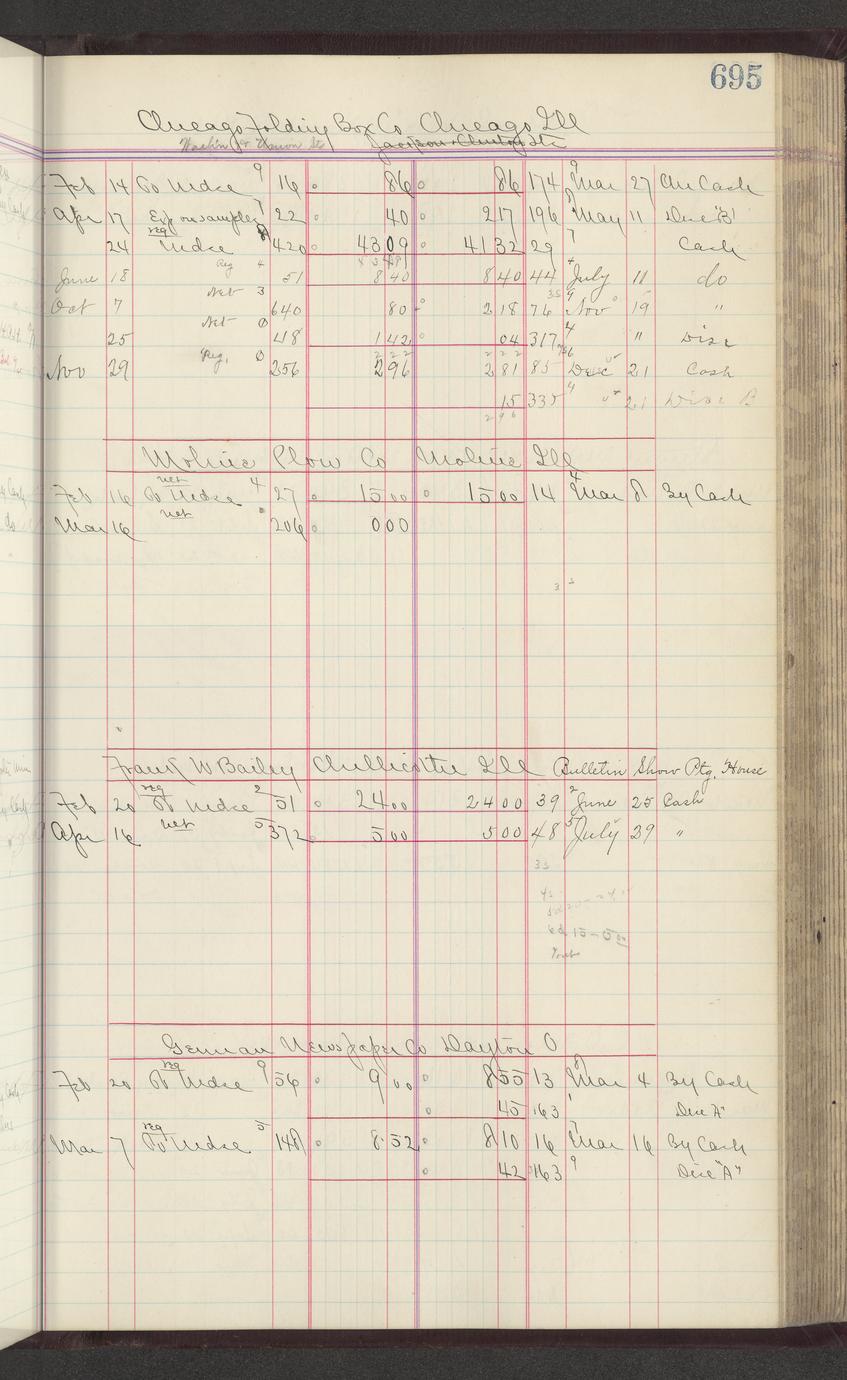 695
Chicago Folding Box Co Chicago Ill
Jackson & Clinton Sts
Feb 14 To Mdse 9 16 86 86 174 9 Mar 27 On Cash
Apr 17 Exp on samples 7 22 40 2 17 196 May 11 Disc "B"
24 reg Mdse 420 43 09 41 32 29 7 Cash
June 18 Reg 4 51 8 40 8 40 44 4 July 11 do
Oct 7 Net 3 640 80 2 18 76 4 Nov 19 "
25 Net 0 48 1 42 04 317 4 " Disc
Nov 29 Reg. 0 256 2 96 2 81 85 Dec 21 Cash
15 335 4 21 Disc B
2 96
Moline Plow Co Moline Ill
Feb 16 net To Mdse 4 27 15 00 15 00 14 4 Mar 8 By Cash
Mar 16 net 206 0 00
3
Frank W Bailey Chillicothe Ill Bulletin Show Ptg. House
Feb 20 reg To Mdse 2 51 24 00 24 00 39 2 June 25 Cash
Apr 16 net 5 372 5 00 5 00 48 5 July 29 "
33
15 – 5 00
German Newspaper Co Dayton O
Feb 20 reg To Mdse 9 56 9 00 8 55 13 8 Mar 4 By Cash
45 163 1 Disc "A"
Mar 7 reg To Mdse 5 148 8 52 8 10 16 7 Mar 16 By Cash
42 163 9 Disc "A"